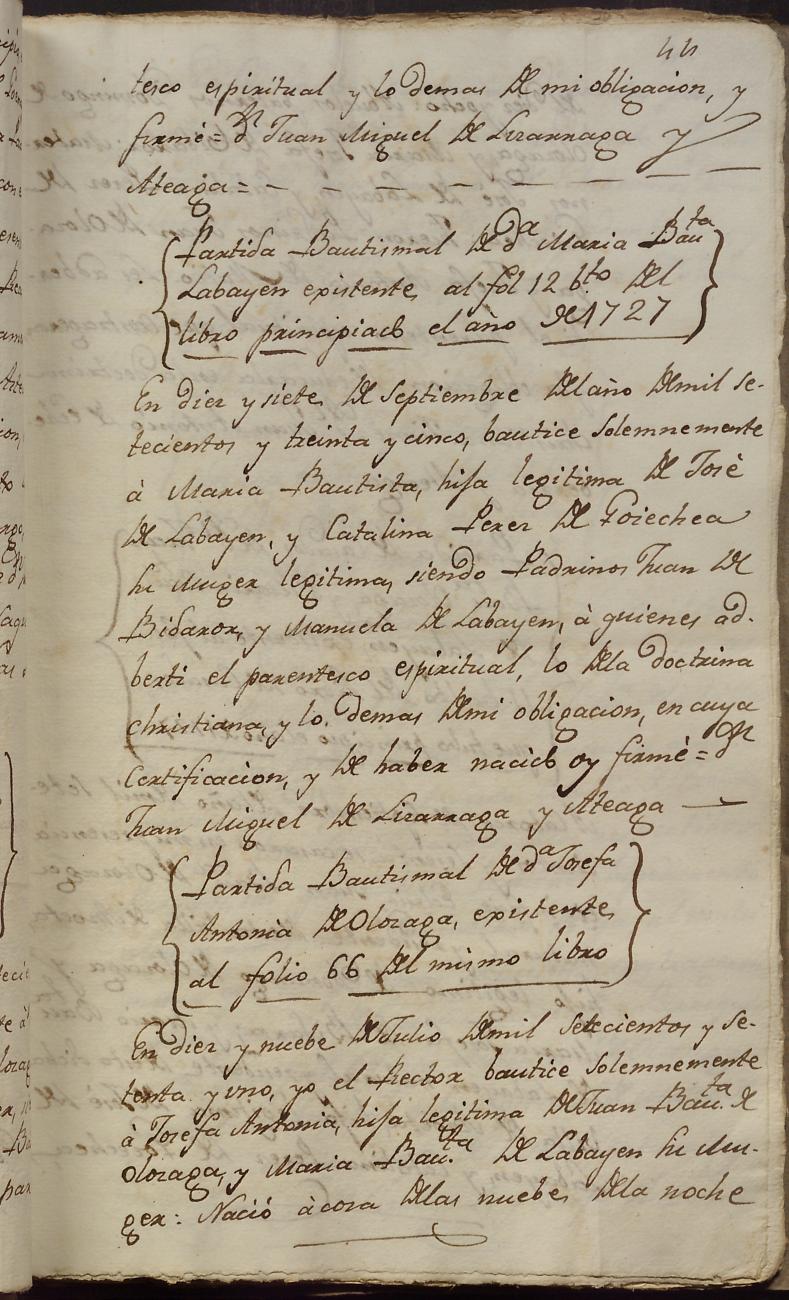 44
tesco espiritual y lo demas de mi obligacion, y
firmé = Dn Juan Miguel de Lizarraga y
Ateaga =
Partida Bautismal de da Maria Bauta
Labayen existente, al fol 12 bto del
libro principiado el año de 1727
En diez y siete de Septiembre del año de mil se-
tecientos y treinta y cinco, bautice solemnemente
à Maria Bautista, hija legitima de José
de Labayen, y Catalina Perez de Goiechea
su Muger legitima, siendo Padrinos Juan de
Bidaror, y Manuela de Labayen, à quienes ad-
berti el parentesco espiritual, lo de la doctrina
christiana, y lo demas de mi obligacion, en cuya
Certificacion, y de haber nacido oy firmé = Dn
Juan Miguel de Lizarraga y Ateaga
Partida Bautismal de da Josefa
Antonia de Olozaga, existente
al folio 66 del mismo libro
En diez y nuebe de Julio de mil setecientos y se-
tenta y uno, yo el Rector bautice solemnemente
à Josefa Antonia, hija legitima de Juan Bauta de
Olozaga, y Maria Bauta de Labayen su Mu-
ger: Nació à cosa de las nuebe de la noche